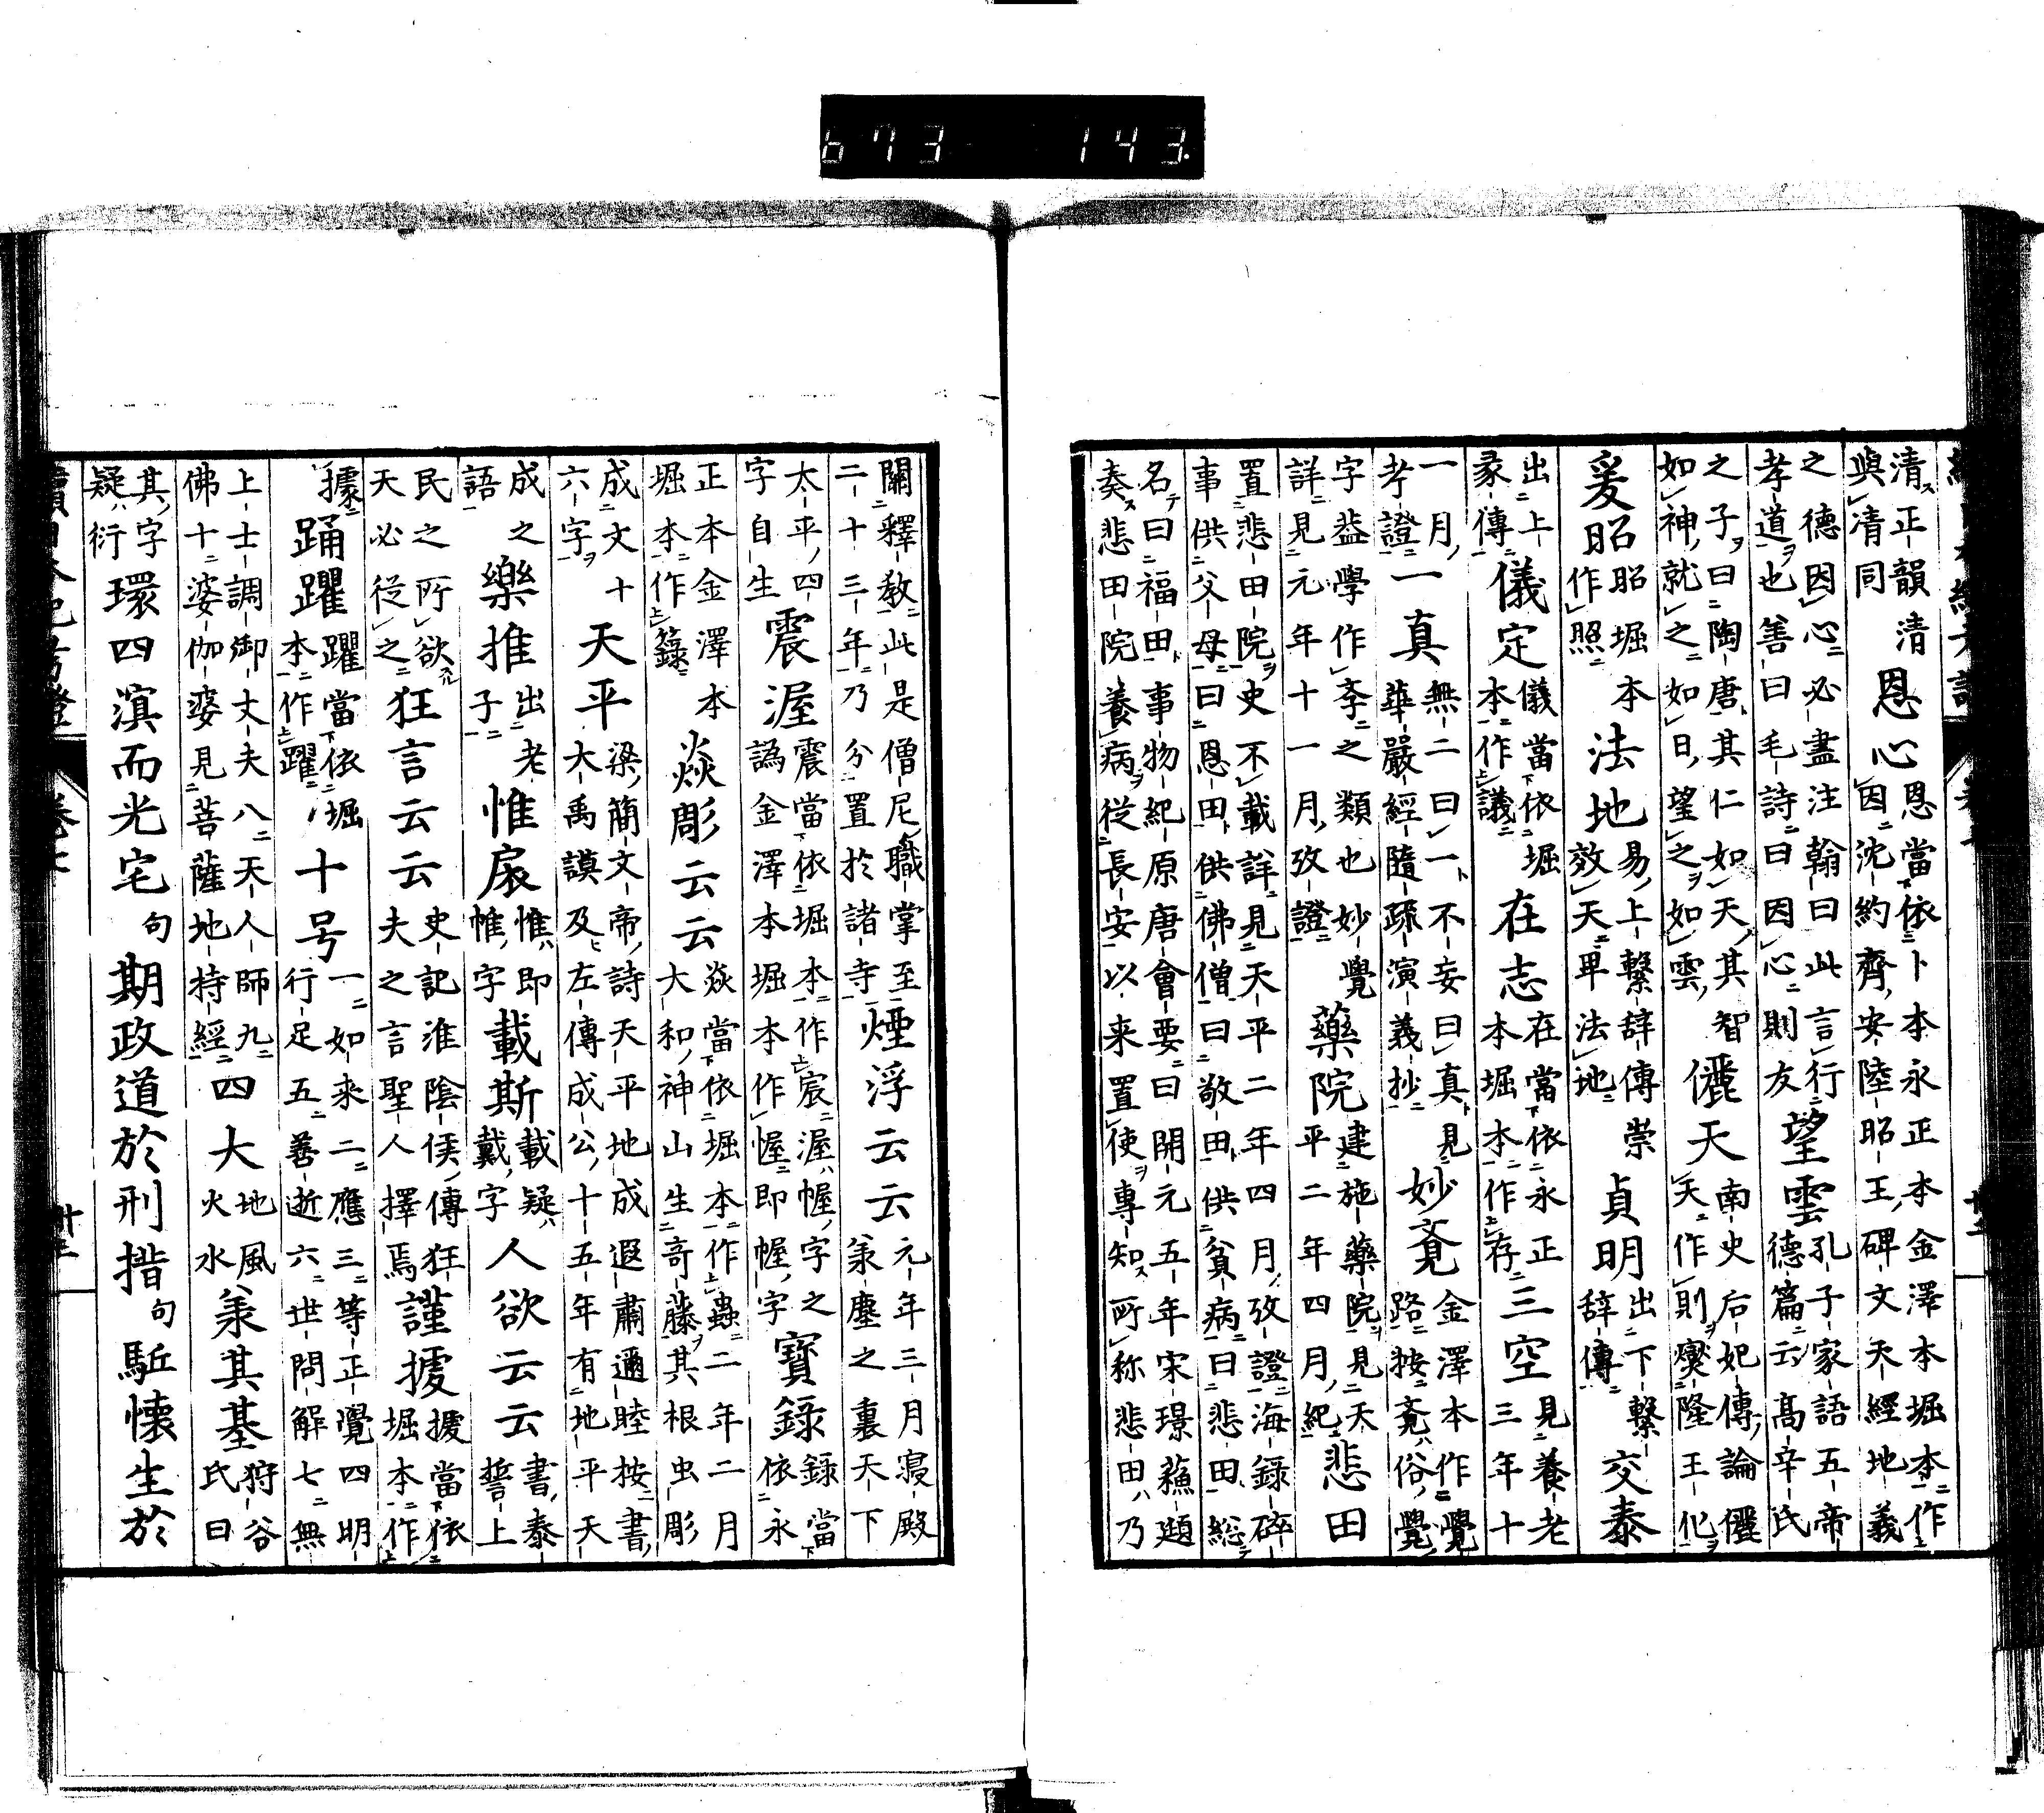 清正韻清與凊同 恩心 恩當依卜本永正本金澤本堀本作因沈約齊安陸昭王碑文天經地義
之德因心必盡注翰曰此言行孝道也善曰毛詩曰因心則友 望雲 孔子家語五帝德篇云高辛氏
之子曰陶唐其仁如天其智如神就之如日望之如雲 儷天 南史后妃傳論儷天作則爕隆王化
爰昭 昭堀本作照 法地 易上繫辞傳崇效天卑法地 貞明 出下繋辞傳 交泰
出上彖傳 儀定 儀當依堀本作議 在志 在當依永正本堀本作存 三空 見養老三年十
一月考證 一真 無二曰一不妄曰真見華嚴經隨疏演義抄 妙斍 金澤本作覺路按斍俗覺
字益學作斈之類也妙覺詳見元年十一月攷證 藥院 建施藥院見天平二年四月紀 悲田
置悲田院史不載詳見天平二年四月攷證海錄碎事供父母曰恩田供佛僧曰敬田供貧病曰悲田総
名曰福田事物紀原唐會要曰開元五年宋璟蘓頲奏悲田院養病從長安以来置使專知所称悲田乃
關釋教此是僧尼職掌至二十三年乃分置於諸寺 煙浮云云 元年三月寢殿羕塵之裏天下
太平四字自生 震渥 震當依堀本作宸渥幄字之譌金澤本堀本作惺即幄字 寶録 録當依永
正本金澤本堀本作籙 焱彫云云 焱當依堀本作蟲二年二月大和神山生奇藤其根虫彫
成文十六字 天平 梁簡文帝詩天平地成遐肅邇睦按書大禹謨及左傳成公十五年有地平天
成之語 樂推 出老子 惟扆 惟即帷字 載斯 載疑戴字 人欲云云 書泰誓上
民之所欲天必從之 狂言云云 史記淮陰侯傳狂夫之言聖人擇焉 謹㨿 㨿當依堀本作
據 踊躍 躍當依堀本作躍 十号 一如来二應三等正覺四明行足五善逝六世問解七無
上士調御丈夫八天人師九佛十婆伽婆見菩薩地持經 四大 地風火水 羕其基 狩谷氏曰
其字疑衍 環四滇而光宅 句 期政道於刑措 句 駈懐生於